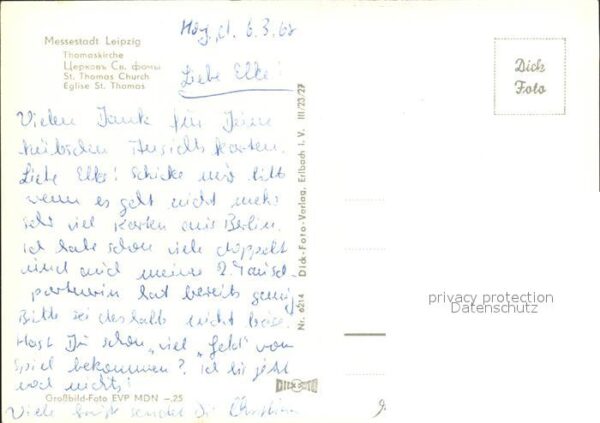 Messestadt Leipzig
Thomaskirche
Церковь Св. фомы
St. Thomas Church
Eglise St. Thomas
d. 6.3.68
Liebe Elke!
Vielen Dank für Deine
hübschen Ansichtskarten.
Liebe Elke! Schicke mir bitte
wenn es geht nicht mehr
sehr viel Karten aus Berlin.
Ich habe schon viele doppelt
und auch meine 2. Tausch-
partnerin hat bereits genug
Bitte sei deshalb nicht böse.
Hast Du schon „viel „Geld" vom
Spiel bekommen? Ich bis jetzt
noch nichts!
Großbild-Foto EVP MDN -,25
Viele Grüße sendet Dir Christina
Nr. 6214 Dick-Foto-Verlag, Erlbach i. V. III/23/27
DICK FOTO
Dick
Foto
privacy protection
Datenschutz